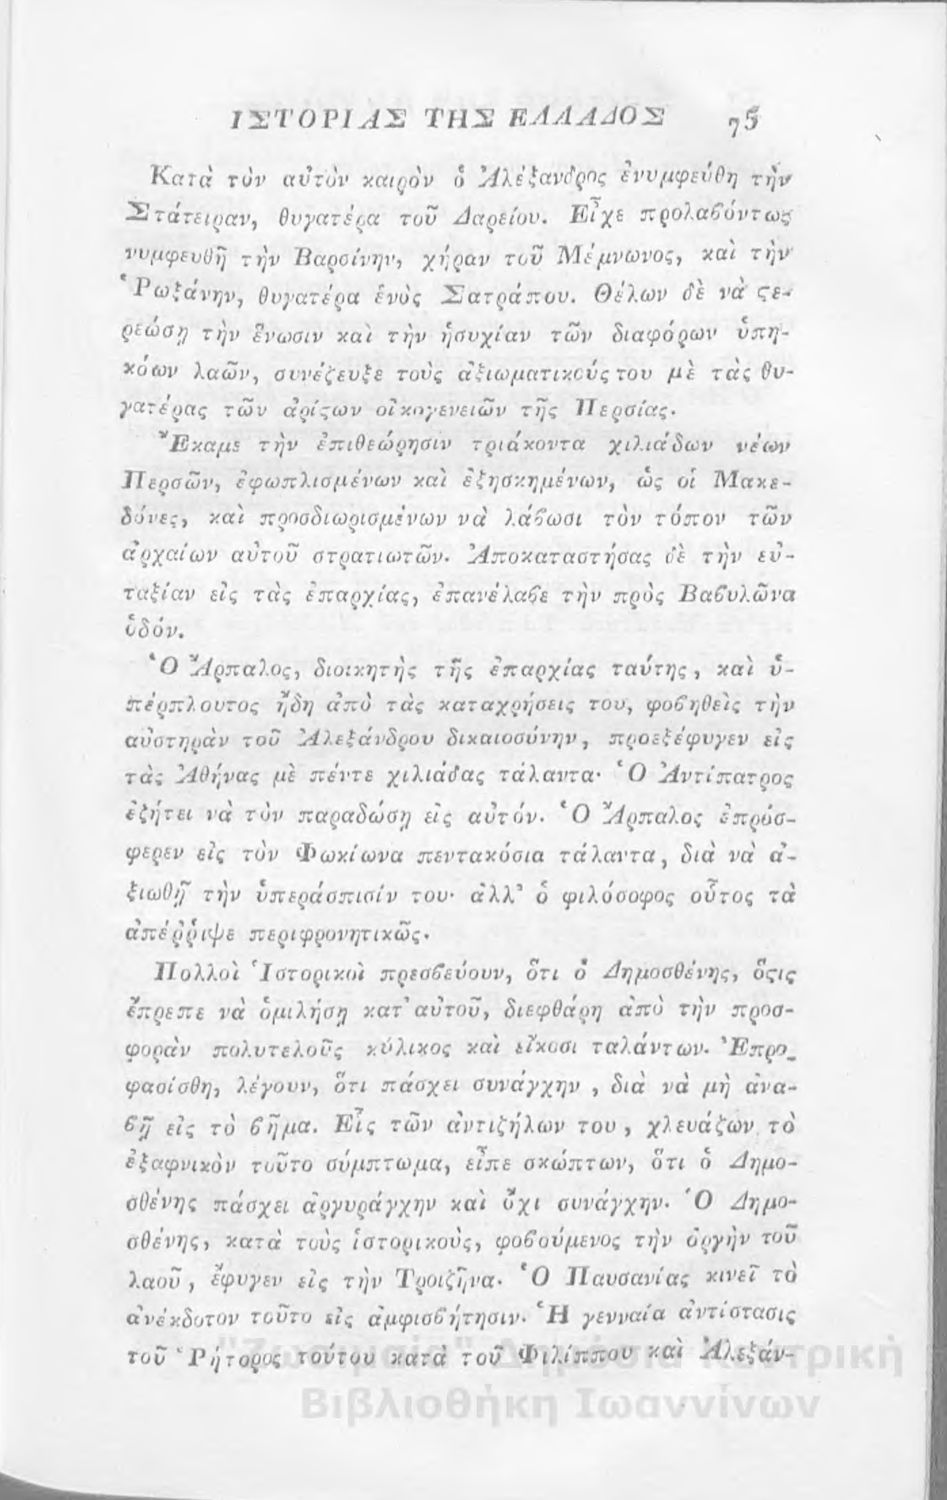 ΙΣΤΟΡΙΑΣ ΤΗΣ ΕΛΛΑΔΟΣ 75
Κατὰ τὸν αὐτὸν καιρὸν ὁ Ἀλέξανδρος ἐνυμφεύθη τὴν
Στάτειραν, θυγατέρα τοῦ Δαρείου. Εἶχε προλαβόντως
νυμφευθῆ τὴν Βαρσίνην, χήραν τοῦ Μέμνωνος, καὶ τὴν
Ῥωξάνην, θυγατέρα ἑνὸς Σατράπου. Θέλων δὲ νὰ ϛε-
ρεώσῃ τὴν ἕνωσιν καὶ τὴν ἡσυχίαν τῶν διαφόρων ὑπη-
κόων λαῶν, συνέζευξε τοὺς ἀξιωματικούς του μὲ τὰς θυ-
γατέρας τῶν ἀρίϛων οἰκογενειῶν τῆς Περσίας.
Ἔκαμε τὴν ἐπιθεώρησιν τριάκοντα χιλιάδων νέων
Περσῶν, ἐφωπλισμένων καὶ ἐξησκημένων, ὡς οἱ Μακε-
δόνες, καὶ προσδιωρισμένων νὰ λάβωσι τὸν τόπον τῶν
ἀρχαίων αὐτοῦ στρατιωτῶν. Ἀποκαταστήσας δὲ τὴν εὐ-
ταξίαν εἰς τὰς ἐπαρχίας, ἐπανέλαβε τὴν πρὸς Βαβυλῶνα
ὁδόν.
Ὁ Ἅρπαλος, διοικητὴς τῆς ἐπαρχίας ταύτης, καὶ ὑ-
πέρπλουτος ἤδη ἀπὸ τὰς καταχρήσεις του, φοβηθεὶς τὴν
αὐστηρὰν τοῦ Ἀλεξάνδρου δικαιοσύνην, προεξέφυγεν εἰς
τὰς Ἀθήνας μὲ πέντε χιλιάδας τάλαντα· Ὁ Ἀντίπατρος
ἐζήτει νὰ τὸν παραδώσῃ εἰς αὐτόν. Ὁ Ἅρπαλος ἐπρόσ-
φερεν εἰς τὸν Φωκίωνα πεντακόσια τάλαντα, διὰ νὰ ἀ-
ξιωθῇ τὴν ὑπεράσπισίν του· ἀλλ' ὁ φιλόσοφος οὗτος τὰ
ἀπέῤῥιψε περιφρονητικῶς.
Πολλοὶ Ἱστορικοὶ πρεσβεύουν, ὅτι ὁ Δημοσθένης, ὅϛις
ἔπρεπε νὰ ὁμιλήσῃ κατ' αὐτοῦ, διεφθάρη ἀπὸ τὴν προσ-
φορὰν πολυτελοῦς κύλικος καὶ εἴκοσι ταλάντων. Ἐπρο_
φασίσθη, λέγουν, ὅτι πάσχει συνάγχην, διὰ νὰ μὴ ἀνα-
βῇ εἰς τὸ βῆμα. Εἷς τῶν ἀντιζήλων του, χλευάζων τὸ
ἐξαφνικὸν τοῦτο σύμπτωμα, εἶπε σκώπτων, ὅτι ὁ Δημο-
σθένης πάσχει ἀργυράγχην καὶ ὄχι συνάγχην. Ὁ Δημο-
σθένης, κατὰ τοὺς ἱστορικοὺς, φοβούμενος τὴν ὀργὴν τοῦ
λαοῦ, ἔφυγεν εἰς τὴν Τροιζῆνα. Ὁ Παυσανίας κινεῖ τὸ
ἀνέκδοτον τοῦτο εἰς ἀμφισβήτησιν. Ἡ γενναία ἀντίστασις
τοῦ Ῥήτορος τούτου κατὰ τοῦ Φιλίππου καὶ Ἀλεξάν-
"Ζωσιμαία" Δημόσια Κεντρική
Βιβλιοθήκη Ιωαννίνων